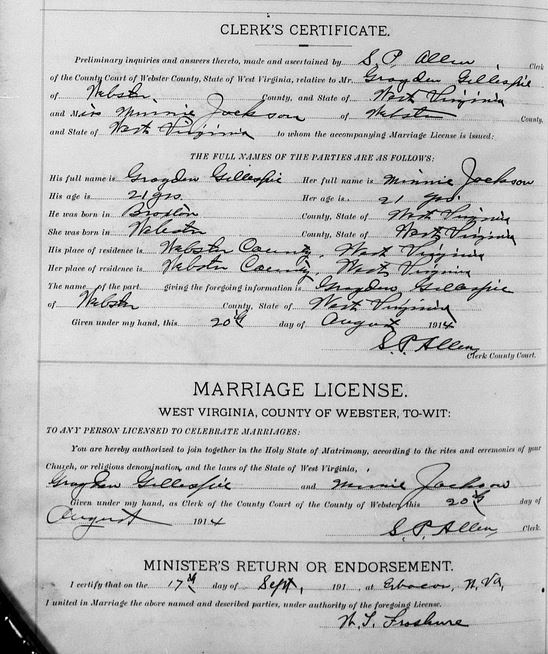 CLERK'S CERTIFICATE.
Preliminary inquiries and answers thereto, made and ascertained by S. P. Allen, Clerk
of the County Court of Webster County, State of West Virginia, relative to Mr. Graydon Gillespie
of Webster County, and State of West Virginia
and Miss Minnie Jackson of Webster County,
and State of West Virginia to whom the accompanying Marriage License is issued:
THE FULL NAMES OF THE PARTIES ARE AS FOLLOWS:
His full name is Graydon Gillespie Her full name is Minnie Jackson
His age is 21 yrs. Her age is 21 yrs.
He was born in Braxton County, State of West Virginia
She was born in Webster County, State of West Virginia
His place of residence is Webster County, West Virginia
Her place of residence is Webster County, West Virginia
The name of the part giving the foregoing information is Graydon Gillespie
of Webster County, State of West Virginia
Given under my hand, this 20th day of August 1914
S. P. Allen,
Clerk County Court.
MARRIAGE LICENSE.
WEST VIRGINIA, COUNTY OF WEBSTER, TO-WIT:
TO ANY PERSON LICENSED TO CELEBRATE MARRIAGES:
You are hereby authorized to join together in the Holy State of Matrimony, according to the rites and ceremonies of your
Church, or religious denomination, and the laws of the State of West Virginia,
Graydon Gillespie and Minnie Jackson
Given under my hand, as Clerk of the County Court of the County of Webster, this 20th day of
August 1914
S. P. Allen, Clerk.
MINISTER'S RETURN OR ENDORSEMENT.
I certify that on the 17th day of Sept, 191 , at W. Va,
I united in Marriage the above named and described parties, under authority of the foregoing License.